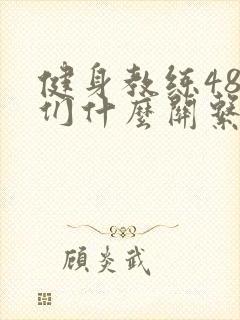 健身教练48
们什麼關繫
顾炎武